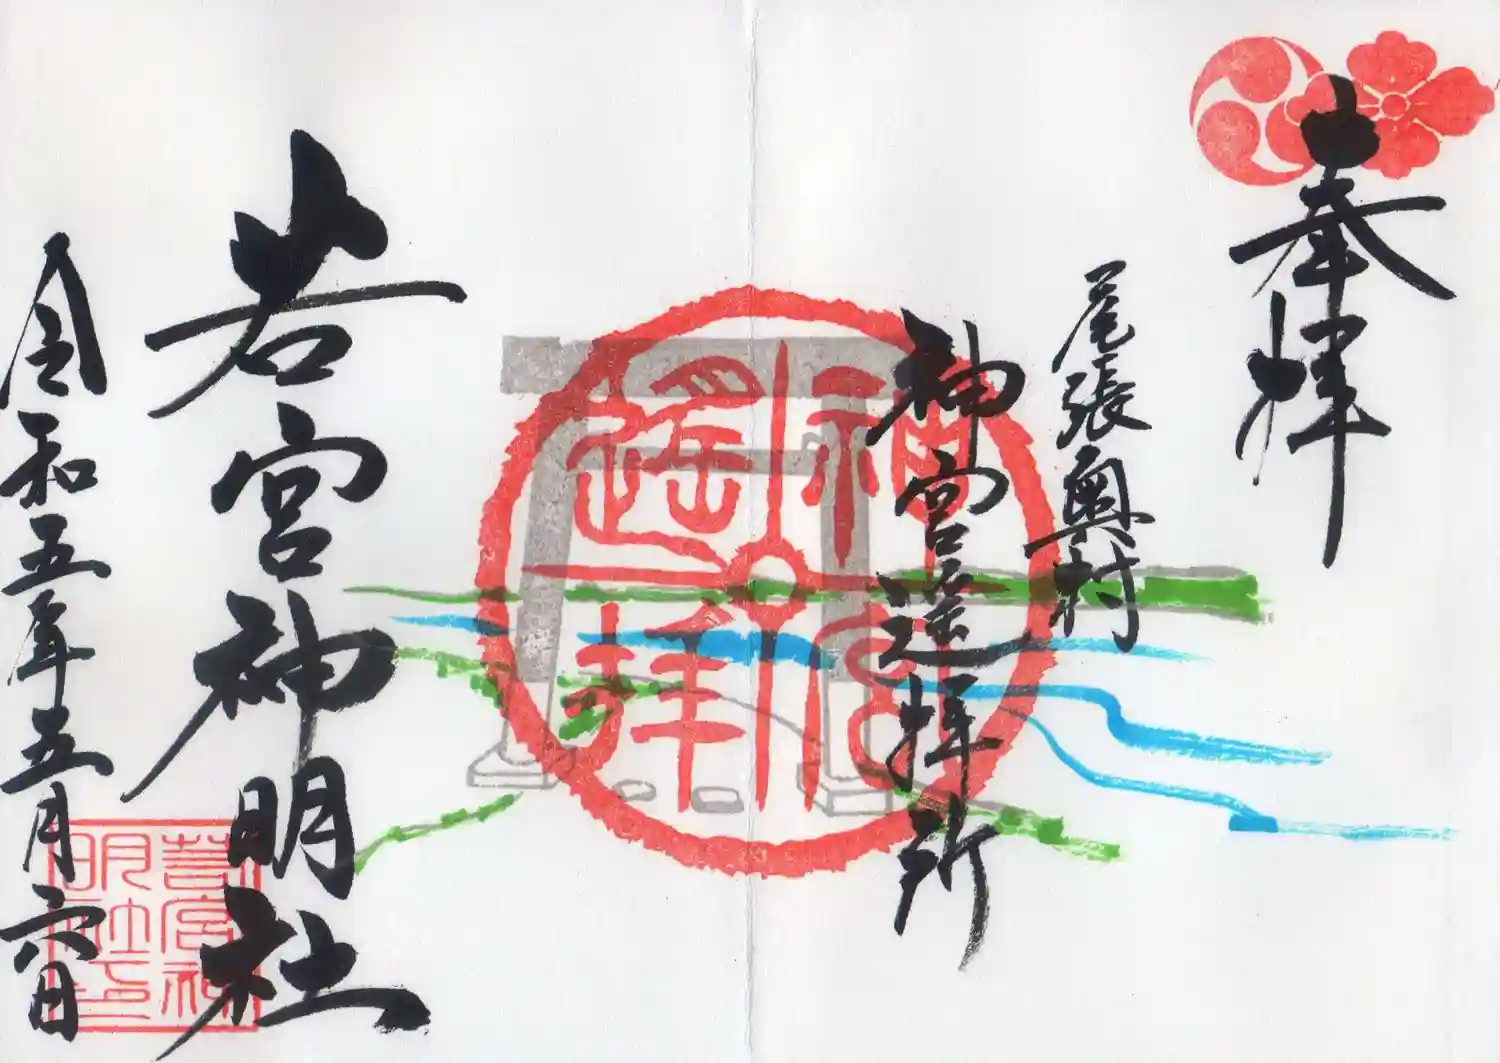 奉拝
尾張奥村
神宮遥拝所
神宮遙拝
若宮神明社
若宮神明社印
令和五年五月六日